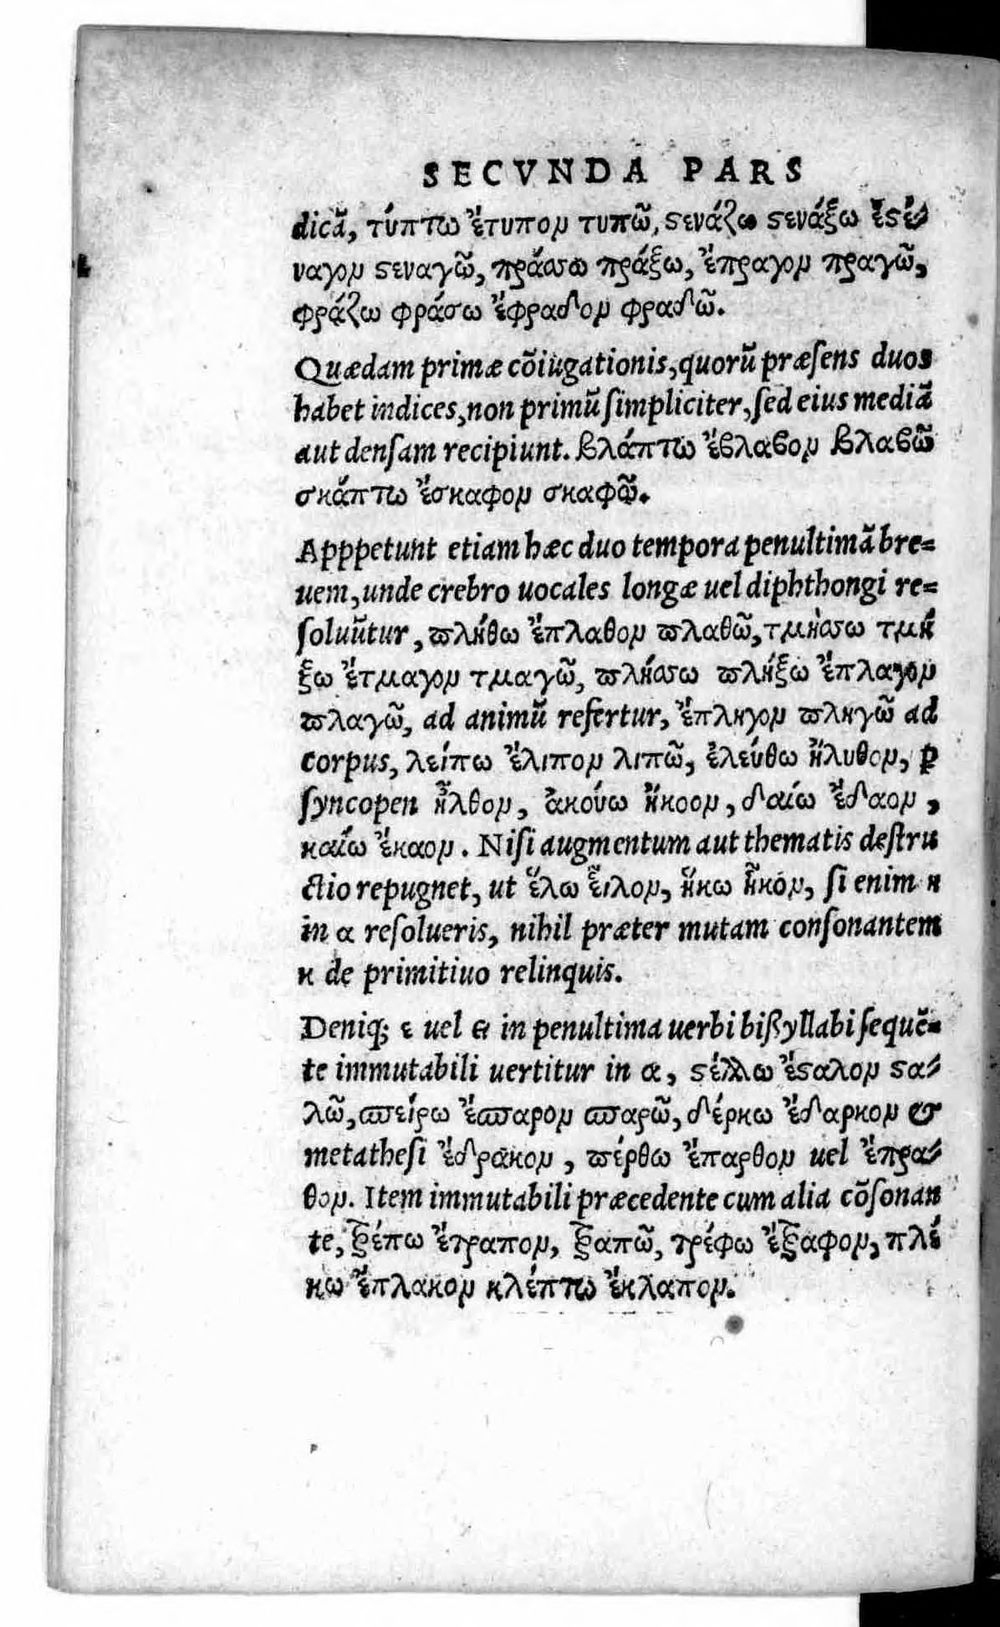 SECVNDA PARS
dicā, τύπτω ἔτυπον τυπῶ, ϛενάζω ϛενάξω ἐϛέ-
ναγον ϛεναγῶ, πράσσω πράξω, ἔπραγον πραγῶ,
φράζω φράσω ἔφραδον φραδῶ.
Quædam primæ cōiugationis, quorū præsens duos
habet indices, non primū simpliciter, sed eius mediā
aut densam recipiunt. βλάπτω ἔβλαβον βλαβῶ
σκάπτω ἔσκαφον σκαφῶ.
Apppetunt etiam hæc duo tempora penultimā bre=
uem, unde crebro uocales longæ uel diphthongi re=
soluūtur, πλήθω ἔπλαθον πλαθῶ, τμήσσω τμή
ξω ἔτμαγον τμαγῶ, πλήσσω πλήξω ἔπλαγον
πλαγῶ, ad animū refertur, ἔπληγον πληγῶ ad
corpus, λείπω ἔλιπον λιπῶ, ἐλεύθω ἤλυθον, ꝑ
syncopen ἦλθον, ἀκούω ἤκοον, δαίω ἔδαον,
καίω ἔκαον. Nisi augmentum aut thematis destru
ctio repugnet, ut ἕλω εἷλον, ἥκω ἧκον, si enim η
in α resolueris, nihil præter mutam consonantem
κ de primitiuo relinquis.
Deniq; ε uel ει in penultima uerbi bißyllabi sequē=
te immutabili uertitur in α, ϛέλλω ἔϛαλον ϛα-
λῶ, σπείρω ἔσπαρον σπαρῶ, δέρκω ἔδαρκον &
metathesi ἔδρακον, πέρθω ἔπαρθον uel ἔπρα-
θον. Item immutabili præcedente cum alia cōsonan
te, τρέπω ἔτραπον, τραπῶ, τρέφω ἔτραφον, πλέ
κω ἔπλακον κλέπτω ἔκλαπον.